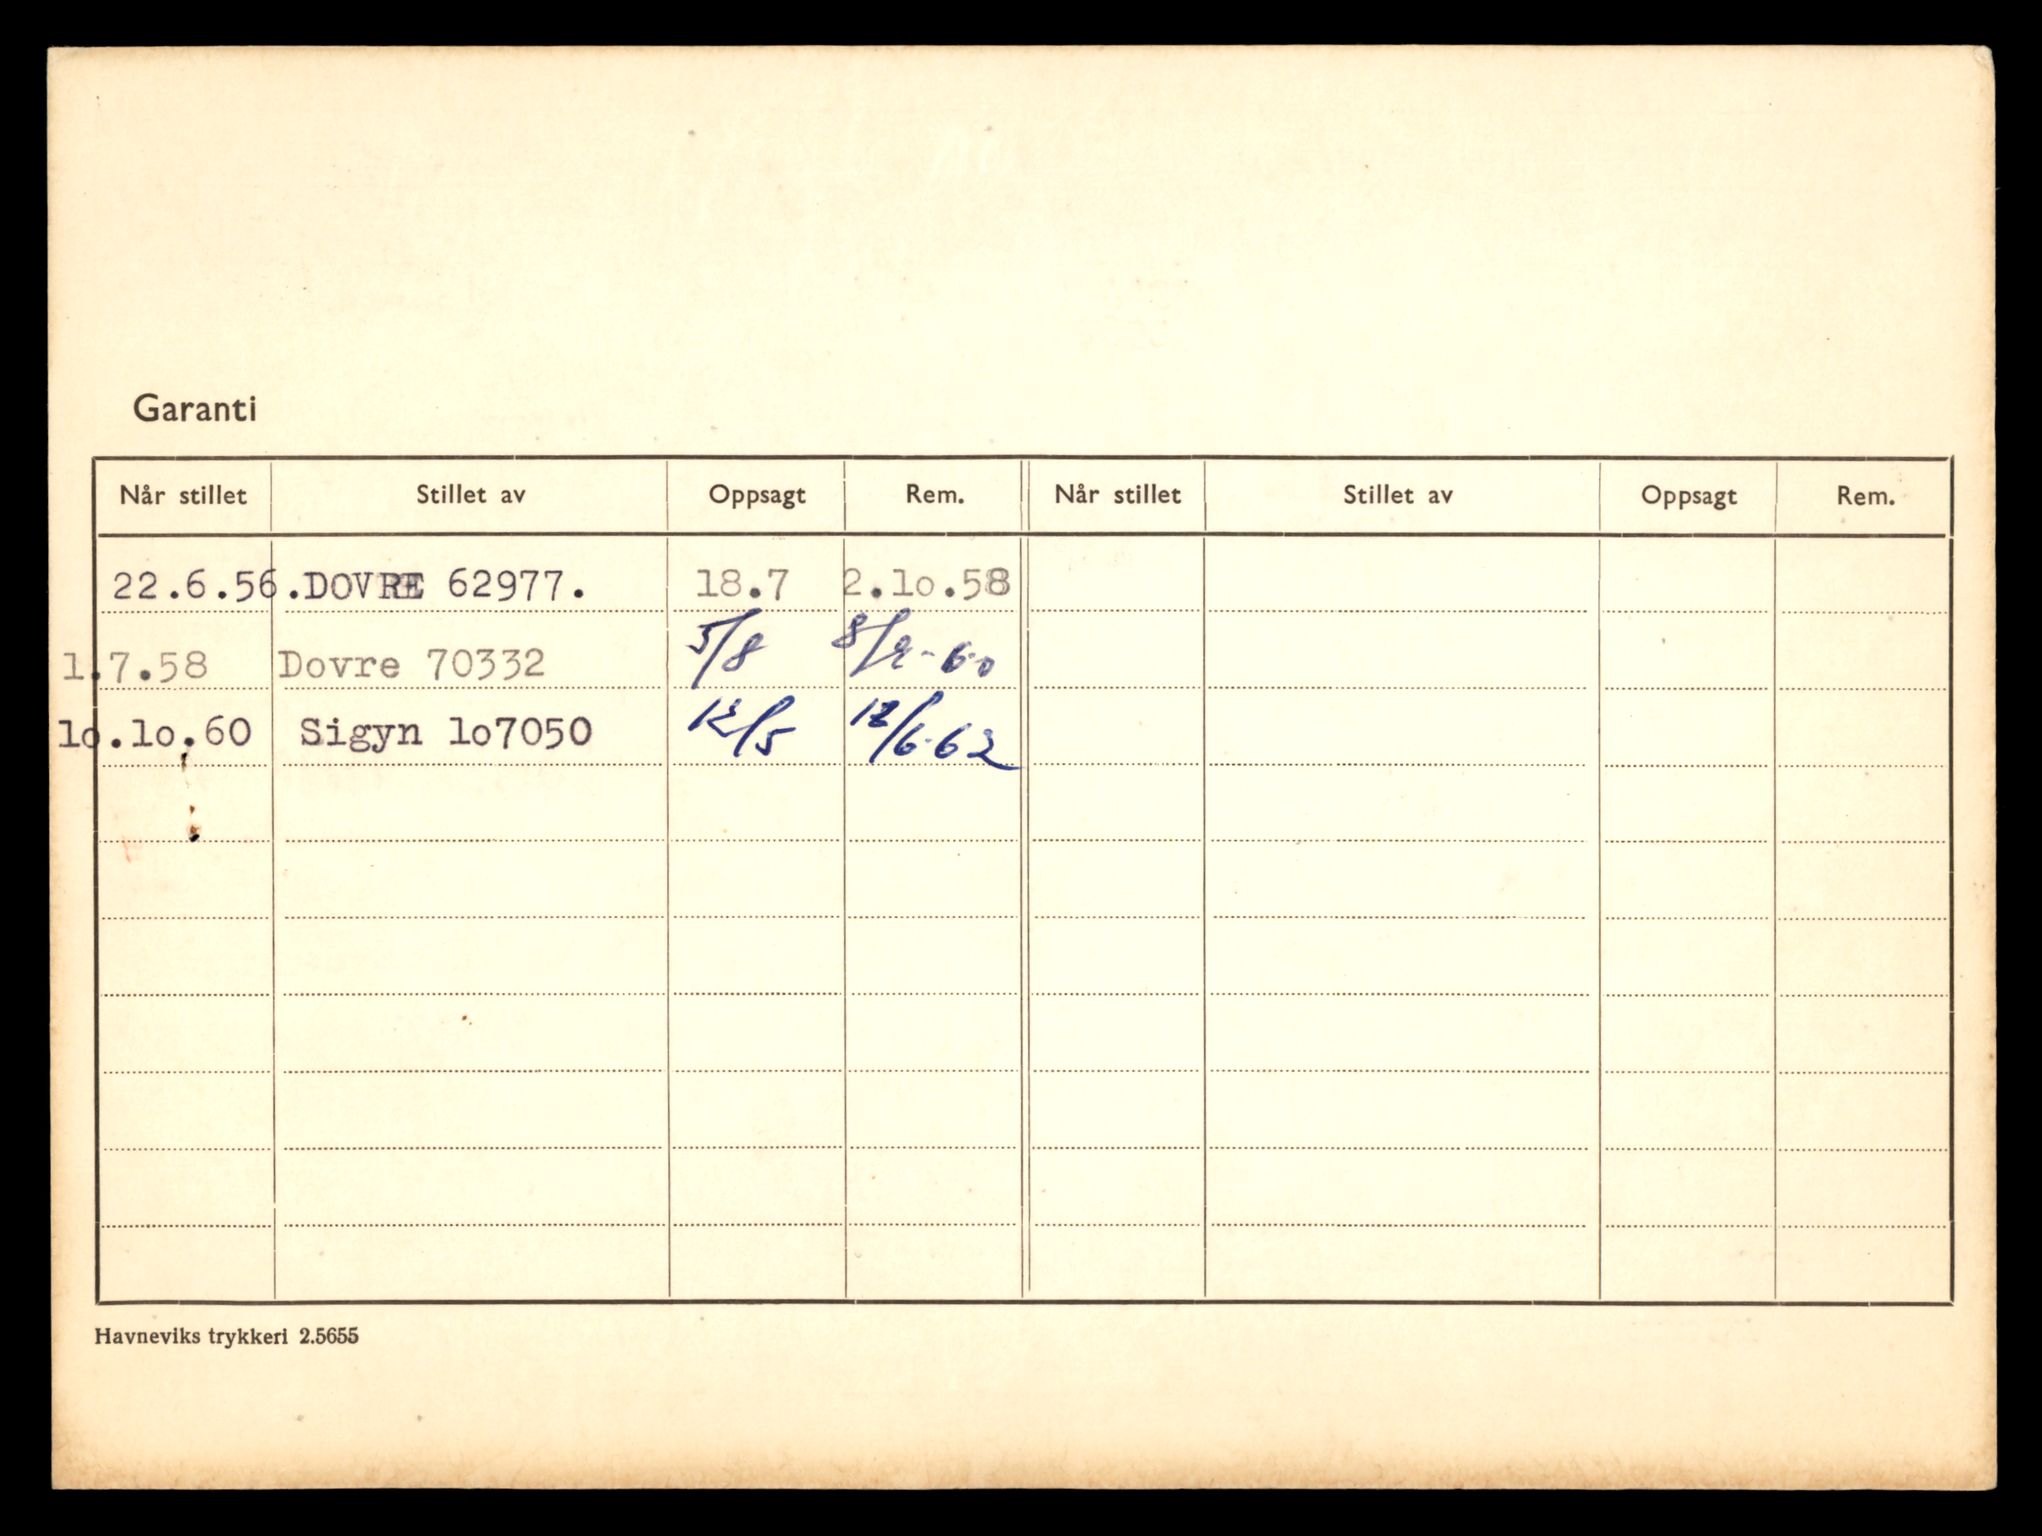 Garanti
Når stillet Stillet av Oppsagt Rem. Når stillet Stillet av Oppsagt Rem.
22.6.56.DOVRE 62977. 18.7 2.lo.58
1.7.58 Dovre 70332 5/8 8/9-60
lo.lo.60 Sigyn lo7050 12/5 12/6-62
Havneviks trykkeri 2.5655